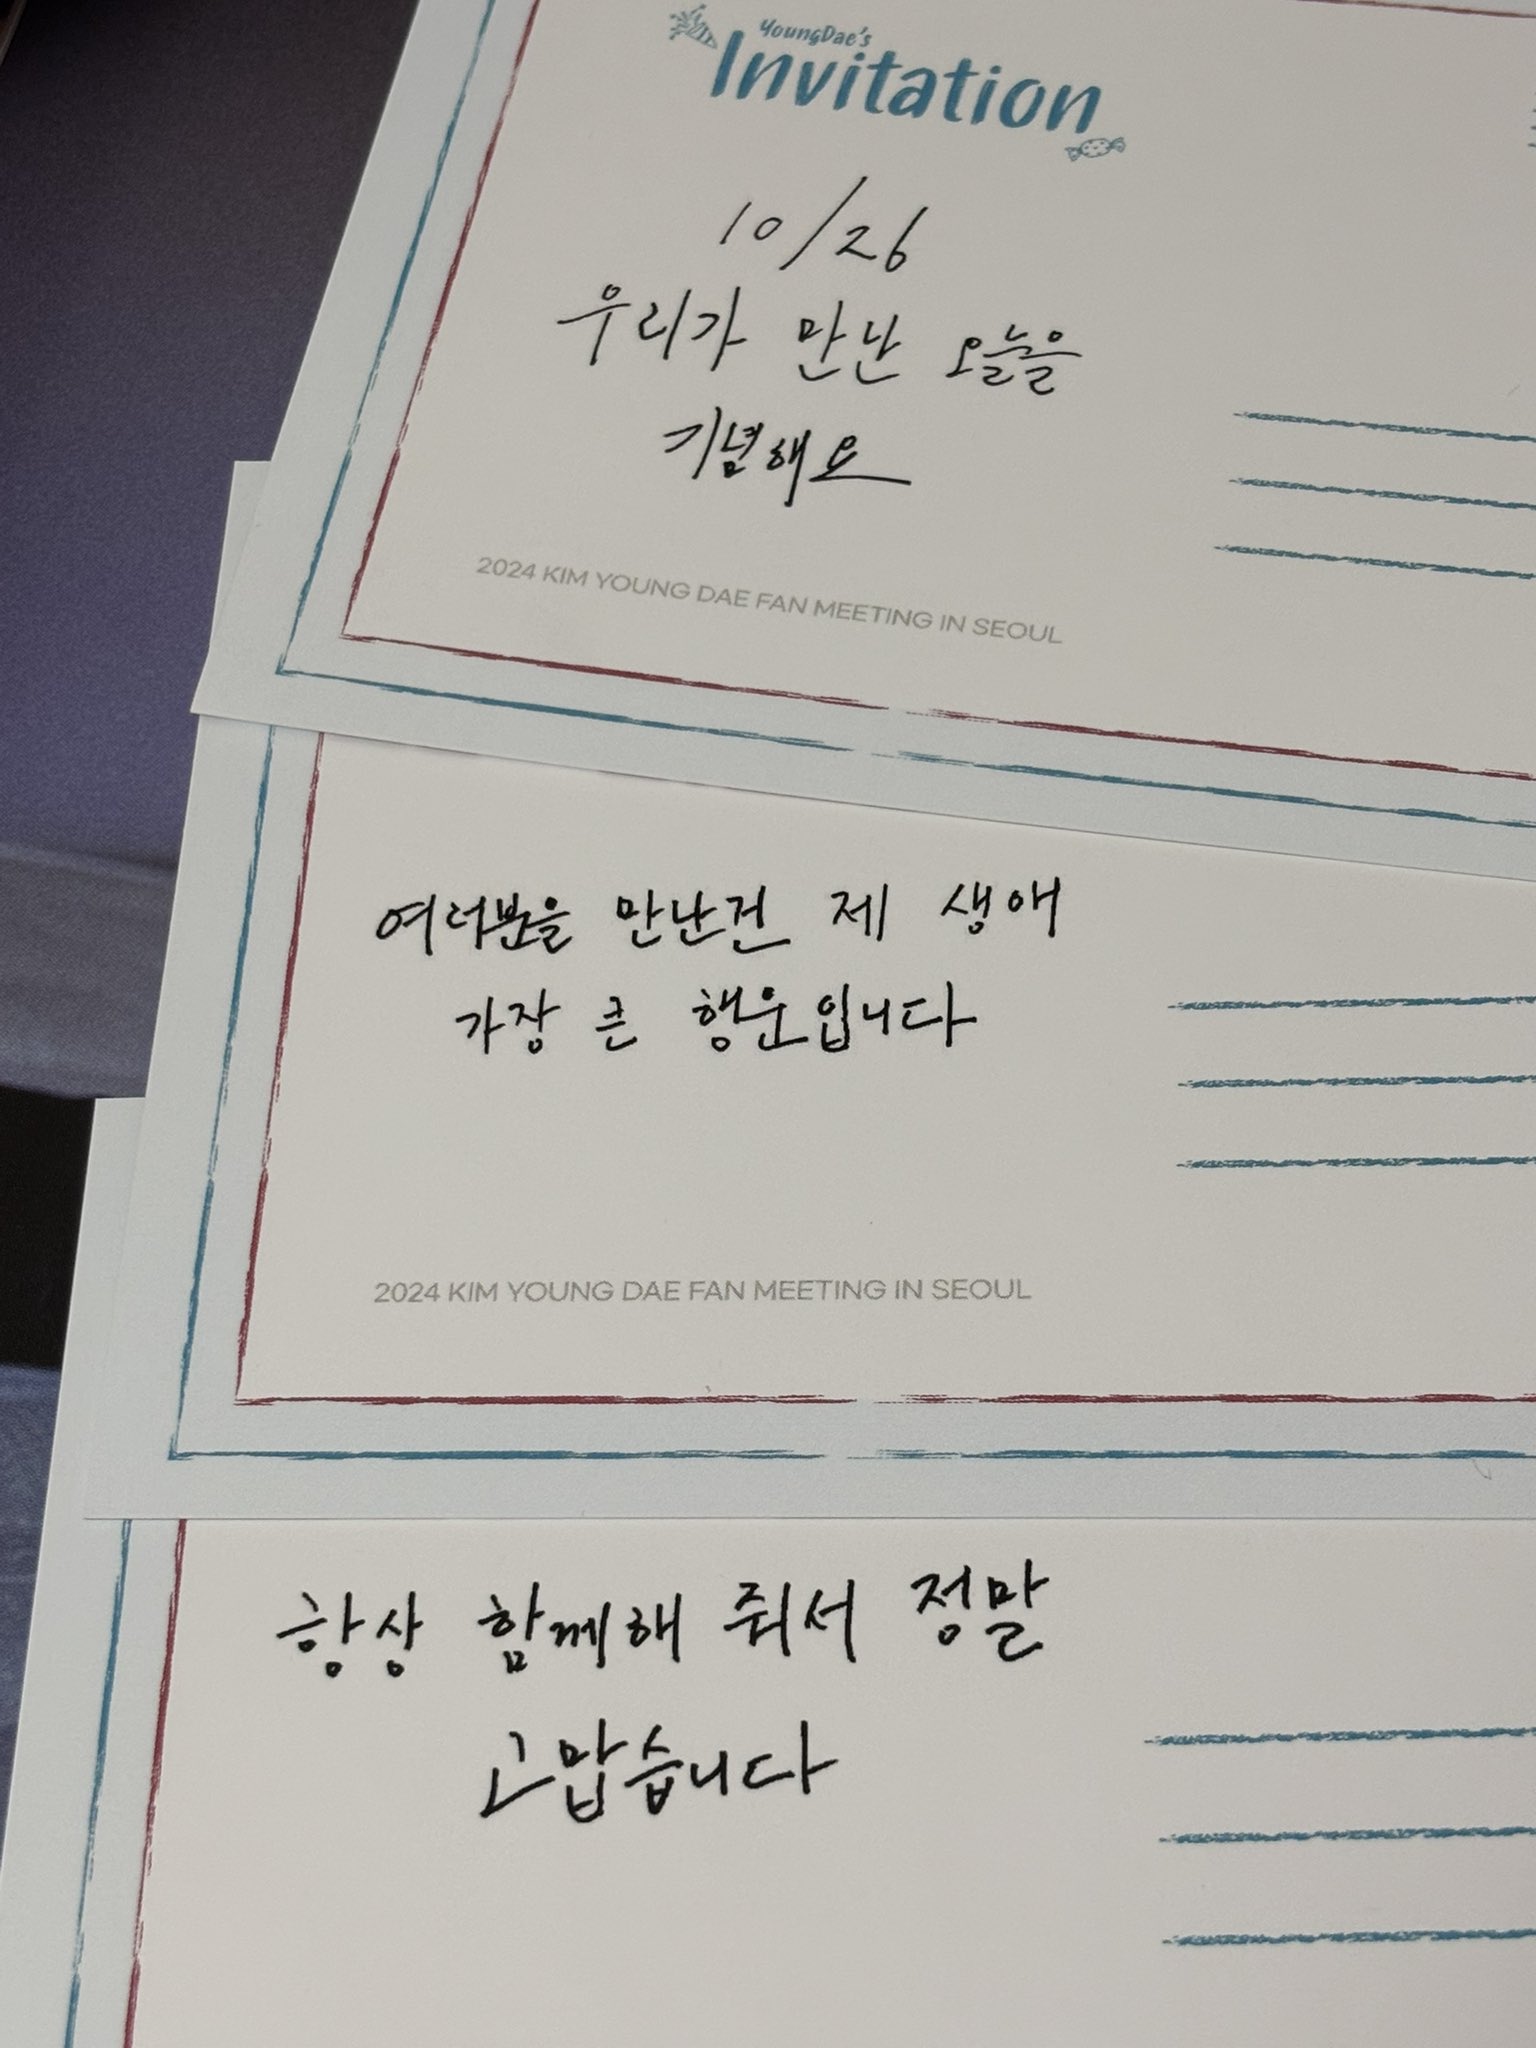 YoungDae's
Invitation
10/26
우리가 만난 오늘을
기념해요
2024 KIM YOUNG DAE FAN MEETING IN SEOUL
여러분을 만난건 제 생애
가장 큰 행운입니다
2024 KIM YOUNG DAE FAN MEETING IN SEOUL
항상 함께해 줘서 정말
고맙습니다